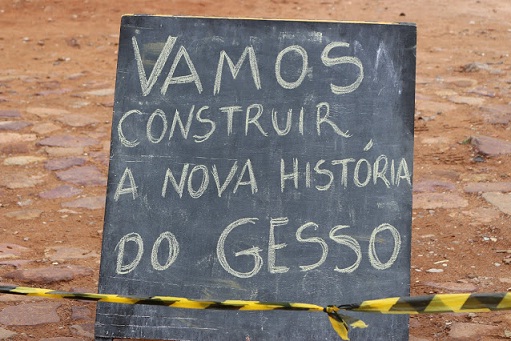 VAMOS
CONSTRUIR
A NOVA HISTÓRIA
DO GESSO